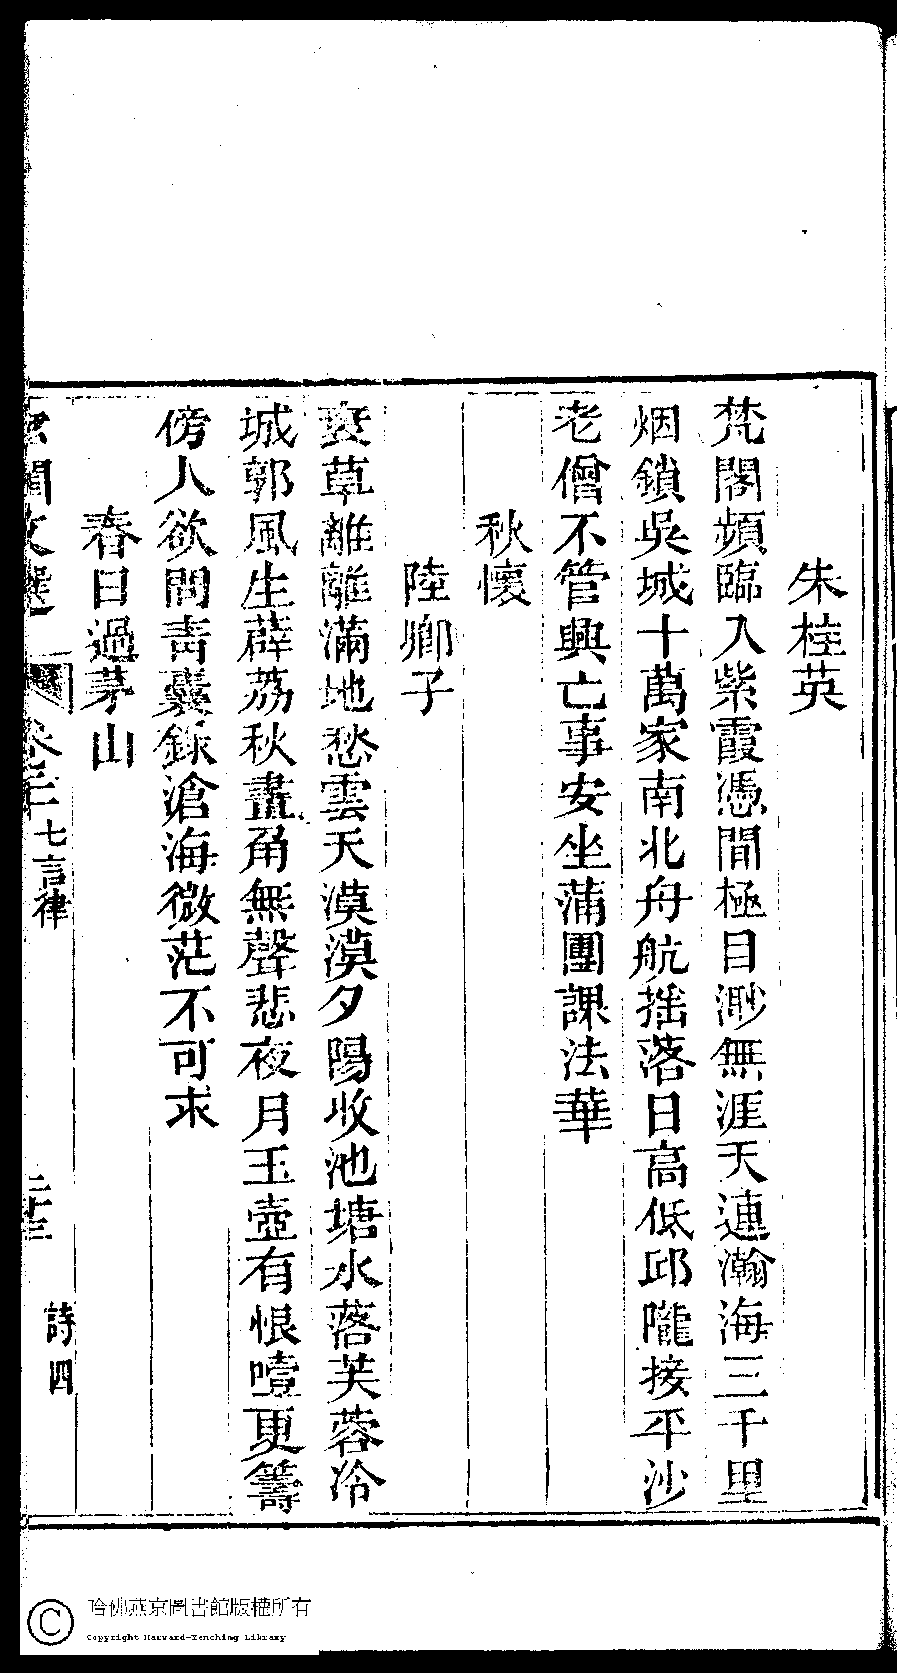 朱桂英
梵閣頻臨入紫霞憑間極目渺無涯天連瀚海三千里
烟鎖吳城十萬家南北舟航搖落日高低邱隴接平沙
老僧不管興亡事安坐蒲團課法華
秋懷
陸卿子
衰草離離滿地愁雲天漠漠夕陽收池塘水落芙蓉冷
城郭風生薜荔秋畫角無聲悲夜月玉壺有恨噎更籌
傍人欲問青囊錄滄海微茫不可求
春日過茅山
宮閨文選
卷二十 七言律
二十三
詩四
哈佛燕京圖書館版權所有
Copyright Harvard-Yenching Library